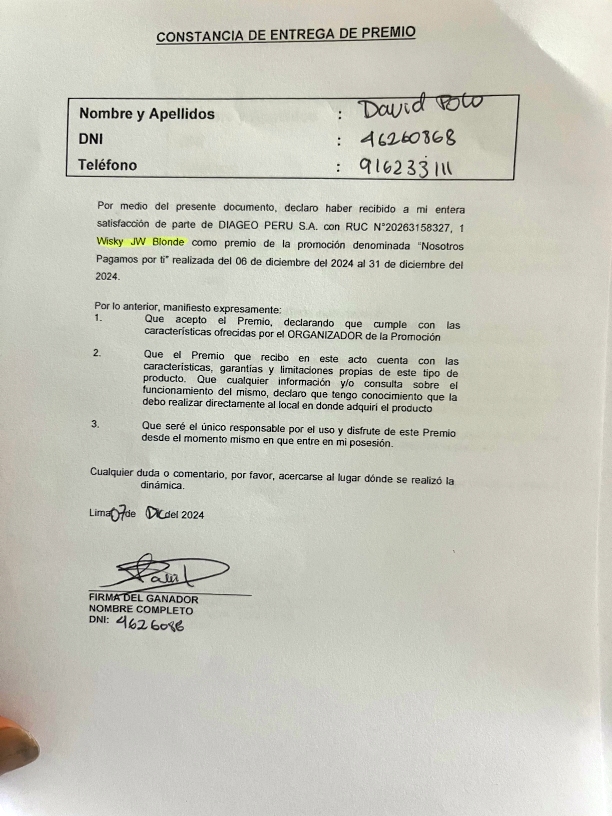 CONSTANCIA DE ENTREGA DE PREMIO
Nombre y Apellidos : David Polo
DNI : 46260868
Teléfono : 916233111
Por medio del presente documento, declaro haber recibido a mi entera
satisfacción de parte de DIAGEO PERU S.A. con RUC N°20263158327, 1
Wisky JW Blonde como premio de la promoción denominada "Nosotros
Pagamos por ti" realizada del 06 de diciembre del 2024 al 31 de diciembre del
2024.
Por lo anterior, manifiesto expresamente:
1. Que acepto el Premio, declarando que cumple con las
características ofrecidas por el ORGANIZADOR de la Promoción
2. Que el Premio que recibo en este acto cuenta con las
características, garantías y limitaciones propias de este tipo de
producto. Que cualquier información y/o consulta sobre el
funcionamiento del mismo, declaro que tengo conocimiento que la
debo realizar directamente al local en donde adquirí el producto
3. Que seré el único responsable por el uso y disfrute de este Premio
desde el momento mismo en que entre en mi posesión.
Cualquier duda o comentario, por favor, acercarse al lugar dónde se realizó la
dinámica.
Lima 07 de Dic del 2024
FIRMA DEL GANADOR
NOMBRE COMPLETO
DNI: